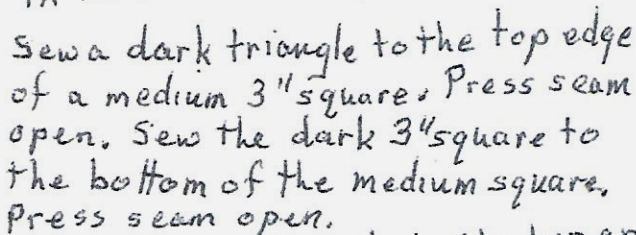 Sew a dark triangle to the top edge
of a medium 3" square. Press seam
open. Sew the dark 3" square to
the bottom of the medium square.
Press seam open.